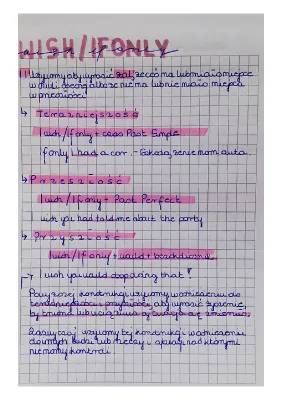 WISH/IFONLY
Używamy aby wyrazić żal, że coś ma lub miało miejsce
w przeszłości
↳ Teraźniejszość
I wish/If only + czas Past Simple
If only I had a car. - Szkoda, że nie mam auta.
↳ Przeszłość
I wish/If only + Past Perfect
I wish you had told me about the party
↳ Przyszłość
I wish/If only + would + bezokolicznik
→ I wish you would stop doing that!
Powyższej konstrukcji używamy w odniesieniu do
teraźniejszości i przyszłości, aby wyrazić życzenie,
by
Zazwyczaj używamy tej konstrukcji w odniesieniu
do innych ludzi lub rzeczy i spraw, nad którymi
nie mamy kontroli